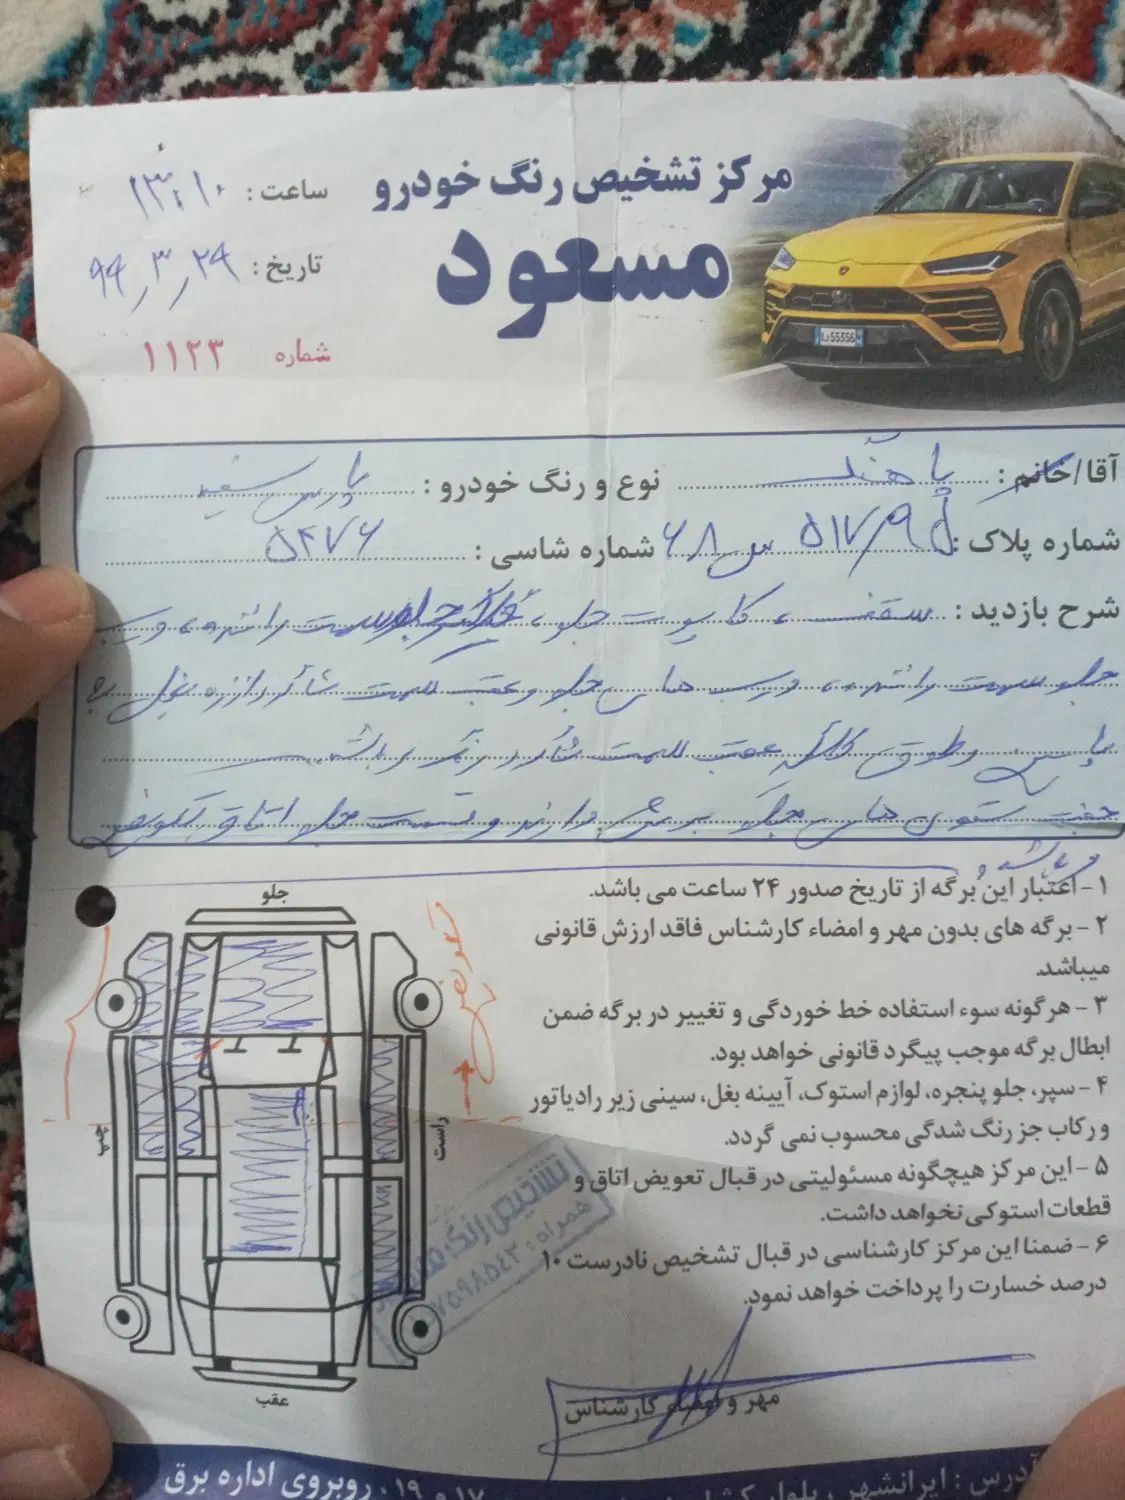 مرکز تشخیص رنگ خودرو
مسعود
ساعت : ۱۳:۱۰
تاریخ : ۹۹/۳/۲۹
شماره ۱۱۲۳
LJ 55356
آقا/خانم : نوع و رنگ خودرو : پارس سفید
شماره پلاک : ۵۱۷/۹۵ س ۶۸ شماره شاسی : ۵۴۷۶
شرح بازدید : سقف ، کاپوت جلو ، گلگیر جلو سمت راننده ، درب
جلو سمت راننده ، درب های جلو و عقب سمت شاگرد از زه بغل به
پایین و طوق گلگیر عقب سمت شاگرد رنگ می باشد
جفت ستون های جلو برش دارند و قسمت جلو اتاق تعویض
می باشد
۱ - اعتبار این برگه از تاریخ صدور ۲۴ ساعت می باشد.
۲ - برگه های بدون مهر و امضاء کارشناس فاقد ارزش قانونی
میباشد.
۳ - هرگونه سوء استفاده خط خوردگی و تغییر در برگه ضمن
ابطال برگه موجب پیگرد قانونی خواهد بود.
۴ - سپر، جلو پنجره، لوازم استوک، آیینه بغل، سینی زیر رادیاتور
و رکاب جز رنگ شدگی محسوب نمی گردد.
۵ - این مرکز هیچگونه مسئولیتی در قبال تعویض اتاق و
قطعات استوکی نخواهد داشت.
۶ - ضمنا این مرکز کارشناسی در قبال تشخیص نادرست ۱۰
درصد خسارت را پرداخت خواهد نمود.
جلو
تعویض
چپ
راست
عقب
تشخیص رنگ
همراه :
مهر و امضاء کارشناس
آدرس : ایرانشهر ، بلوار ۱۷ و ۱۹ ، روبروی اداره برق